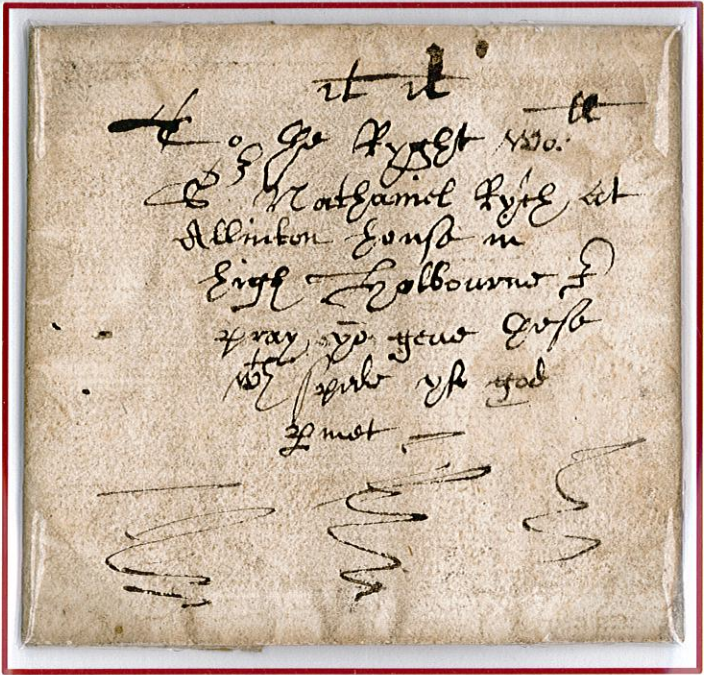 it it
To the Ryght Wo:ll
Sr Nathaniel Rych at
Allinton house in
high Holbourne I
pray yo geue these
wth spide yf god
pmet